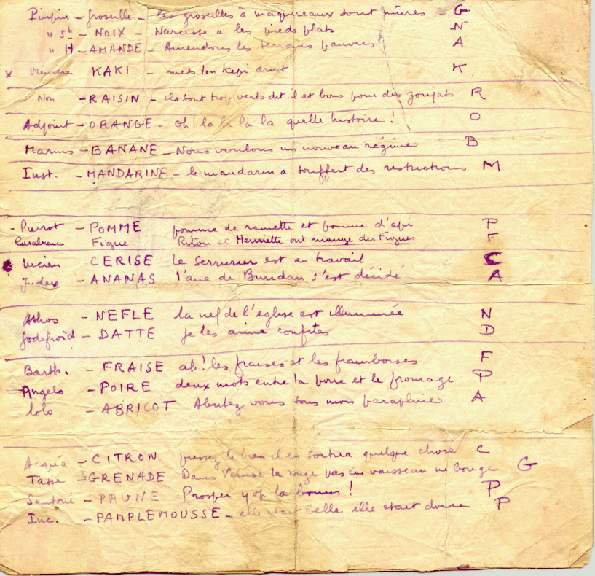 Pimpin - groseille - les groseilles à maquereaux sont mûres - G
" St - NOIX - Narcisse a les pieds plats N
" H - AMANDE - les pauvres! A
x KAKI - mets ton képi droit K
Non - RAISIN - ils sont trop verts dit-il et bons pour des goujats R
Adjoint - ORANGE - Oh la la la la quelle histoire! O
Marius - BANANE - Nous voulons un nouveau régime B
Inst. - MANDARINE - le mandarin a souffert des restrictions M
- Pierrot - POMME pomme de reinette et pomme d'api P
Figue Riton et Henriette ont mangé des figues F
Lucien CERISE le serrurier est au travail C
Judex - ANANAS l'âne de Buridan s'est décidé A
Athos - NEFLE la nef de l'église est illuminée N
Godefroid - DATTE je les aime confites D
Barth. - FRAISE ah! les fraises et les framboises F
Angelo - POIRE deux mots entre la poire et le fromage P
Lolo - ABRICOT Abritez vous sous mon parapluie A
Acacia - CITRON pressez le bien il en sortira quelque chose C
GRENADE Dans Venise la rouge pas un vaisseau ne bouge G
- PRUNE Prosper yop la boum! P
Inc. - PAMPLEMOUSSE - elle était belle elle était douce P